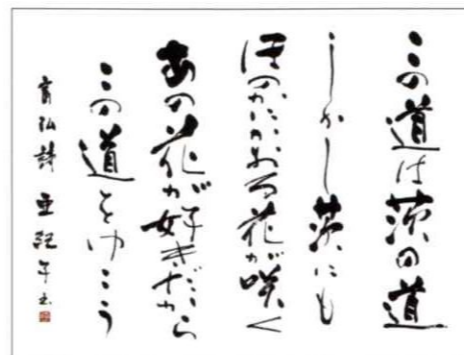 この道は茨の道
しかし茨にも
ほのかにかおる花が咲く
あの花が好きだから
この道をゆこう